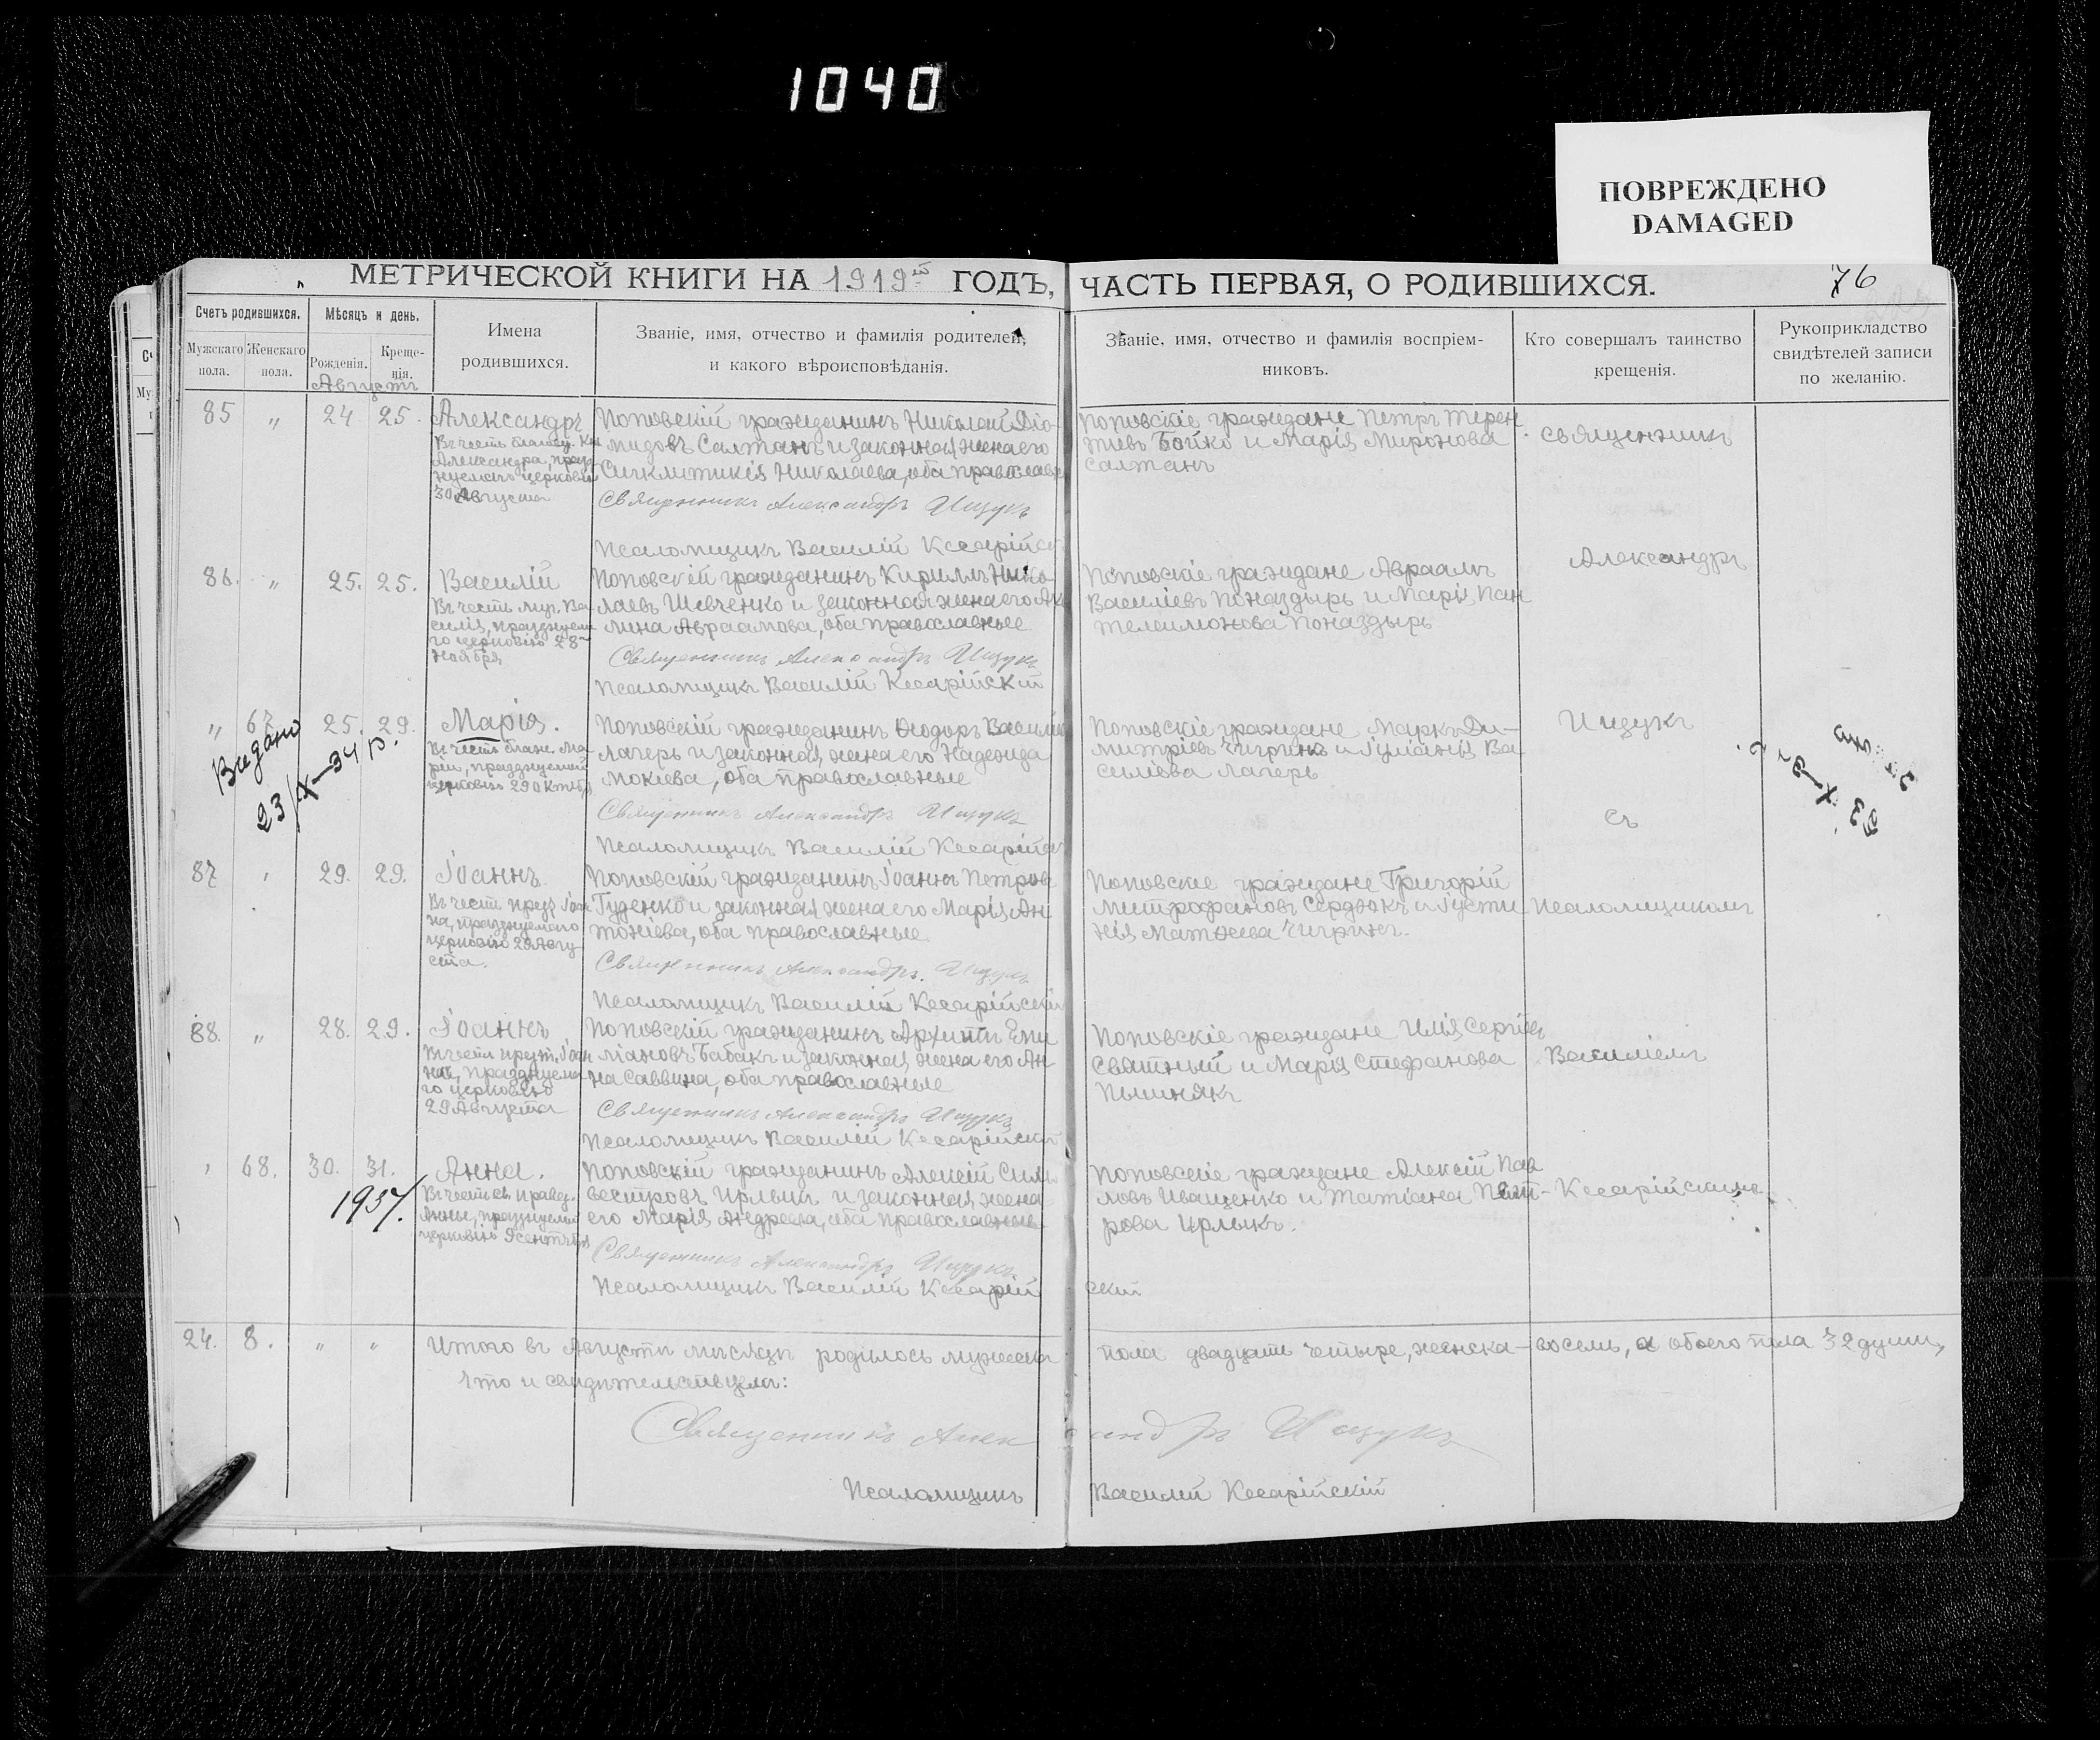 1040
ПОВРЕЖДЕНО
DAMAGED
МЕТРИЧЕСКОЙ КНИГИ НА 1919й ГОДЪ, ЧАСТЬ ПЕРВАЯ, О РОДИВШИХСЯ.
76
Счетъ родившихся.
Мужскаго пола.
Женскаго пола.
Мѣсяцъ и день.
Рожденія.
Крещенія.
Августъ
Имена
родившихся.
Званіе, имя, отчество и фамилія родителей,
и какого вѣроисповѣданія.
Званіе, имя, отчество и фамилія воспріем-
никовъ.
Кто совершалъ таинство
крещенія.
Рукоприкладство
свидѣтелей записи
по желанію.
85 " 24 25. Александръ
Въ честь благов. Кн
Александра, празд
нуемаго церковью
30 Августа
Поповскій гражданинъ Николай Діо-
мидовъ Салтанъ и законная жена его
Сигклитикія Николаева, оба православн
Священникъ Александръ Ищукъ
Псаломщикъ Василій Кесарійск
Поповскіе граждане Петръ Терен
тиевъ Бойко и Марія Миронова
Салтанъ
Священникъ
86. " 25. 25. Василій
Въ честь муч. Ва
силія, празднуема
го церковію 28
Ноября
Поповскій гражданинъ Кириллъ Нико-
лаевъ Шевченко и законная жена его Ак
лина Авраамова, оба православные
Священникъ Александръ Ищукъ
Псаломщикъ Василій Кесарійскій
Поповскіе граждане Авраамъ
Василіевъ Поназдырь и Марія Пан
телеимонова Поназдырь
Александръ
" 67 25. 29. Марія.
Видано
23/X–34 р.
Въ честь блажен. Ма
ріи, празднуемой
церковію 29 Октяб
Поповскій гражданинъ Ѳеодоръ Василі
Лагерь и законная жена его Надежда
Мокіева, оба православные
Священникъ Александръ Ищукъ
Псаломщикъ Василій Кесарійск
Поповскіе граждане Маркъ Ди-
митріевъ Чигринъ и Іуліанія Ва
силіева Лагерь
Ищукъ
съ
87 " 29. 29. Іоаннъ.
Въ честь пред. Іоан
на, празднуемаго
церковію 29 Авгу
ста.
Поповскій гражданинъ Іоаннъ Петров
Гуденко и законная жена его Марія Ан
тоніева, оба православные
Священникъ Александръ. Ищукъ
Псаломщикъ Василій Кесарійскій
Поповскіе граждане Григорій
Митрофановъ Сердюкъ и Іусти
нія Матѳеева Чигринъ.
Псаломщикомъ
88. " 28. 29. Іоаннъ
Въ честь предт. Іоан
на, празднуема
го церковію
29 Августа
Поповскій гражданинъ Архипъ Еми
ліановъ Бабакъ и законная жена его Ан
на Саввина, оба православные
Священникъ Александръ Ищукъ
Псаломщикъ Василій Кесарійскій
Поповскіе граждане Илія Сергіевъ
Святный и Марія Стефанова
Пышнякъ
Василіемъ
" 68. 30. 31. Анна.
1937.
Въ честь св. правед.
Анны, празднуемой
церковію 9 сентября
Поповскій гражданинъ Алексій Силь
вестровъ Ирлыкъ и законная жена
его Марія Андреева, оба православные.
Священникъ Александръ Ищукъ
Псаломщикъ Василій Кесарійскій
Поповскіе граждане Алексій Пав
ловъ Иващенко и Татіана Пет-
рова Ирлыкъ.
Кесарійскимъ.
24. 8. " " Итого въ Августѣ мѣсяцѣ родилось мужеска пола двадцать четыре, женска – восемь, а обоего пола 32 души,
что и свидѣтельствуемъ:
Священникъ Александръ Ищукъ
Псаломщикъ Василій Кесарійскій